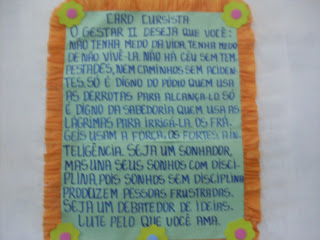 CARO CURSISTA
O GESTAR II DESEJA QUE VOCÊ:
NÃO TENHA MEDO DA VIDA, TENHA MEDO
DE NÃO VIVÊ-LA. NÃO HÁ CÉU SEM TEM-
PESTADES, NEM CAMINHOS SEM ACIDEN-
TES. SÓ É DIGNO DO PÓDIO QUEM USA
AS DERROTAS PARA ALCANÇÁ-LO. SÓ
É DIGNO DA SABEDORIA QUEM USA AS
LÁGRIMAS PARA IRRIGÁ-LA. OS FRÁ-
GEIS USAM A FORÇA, OS FORTES, A IN-
TELIGÊNCIA. SEJA UM SONHADOR,
MAS UNA SEUS SONHOS COM DISCI-
PLINA POIS SONHOS SEM DISCIPLINA
PRODUZEM PESSOAS FRUSTRADAS.
SEJA UM DEBATEDOR DE IDEIAS.
LUTE PELO QUE VOCÊ AMA.